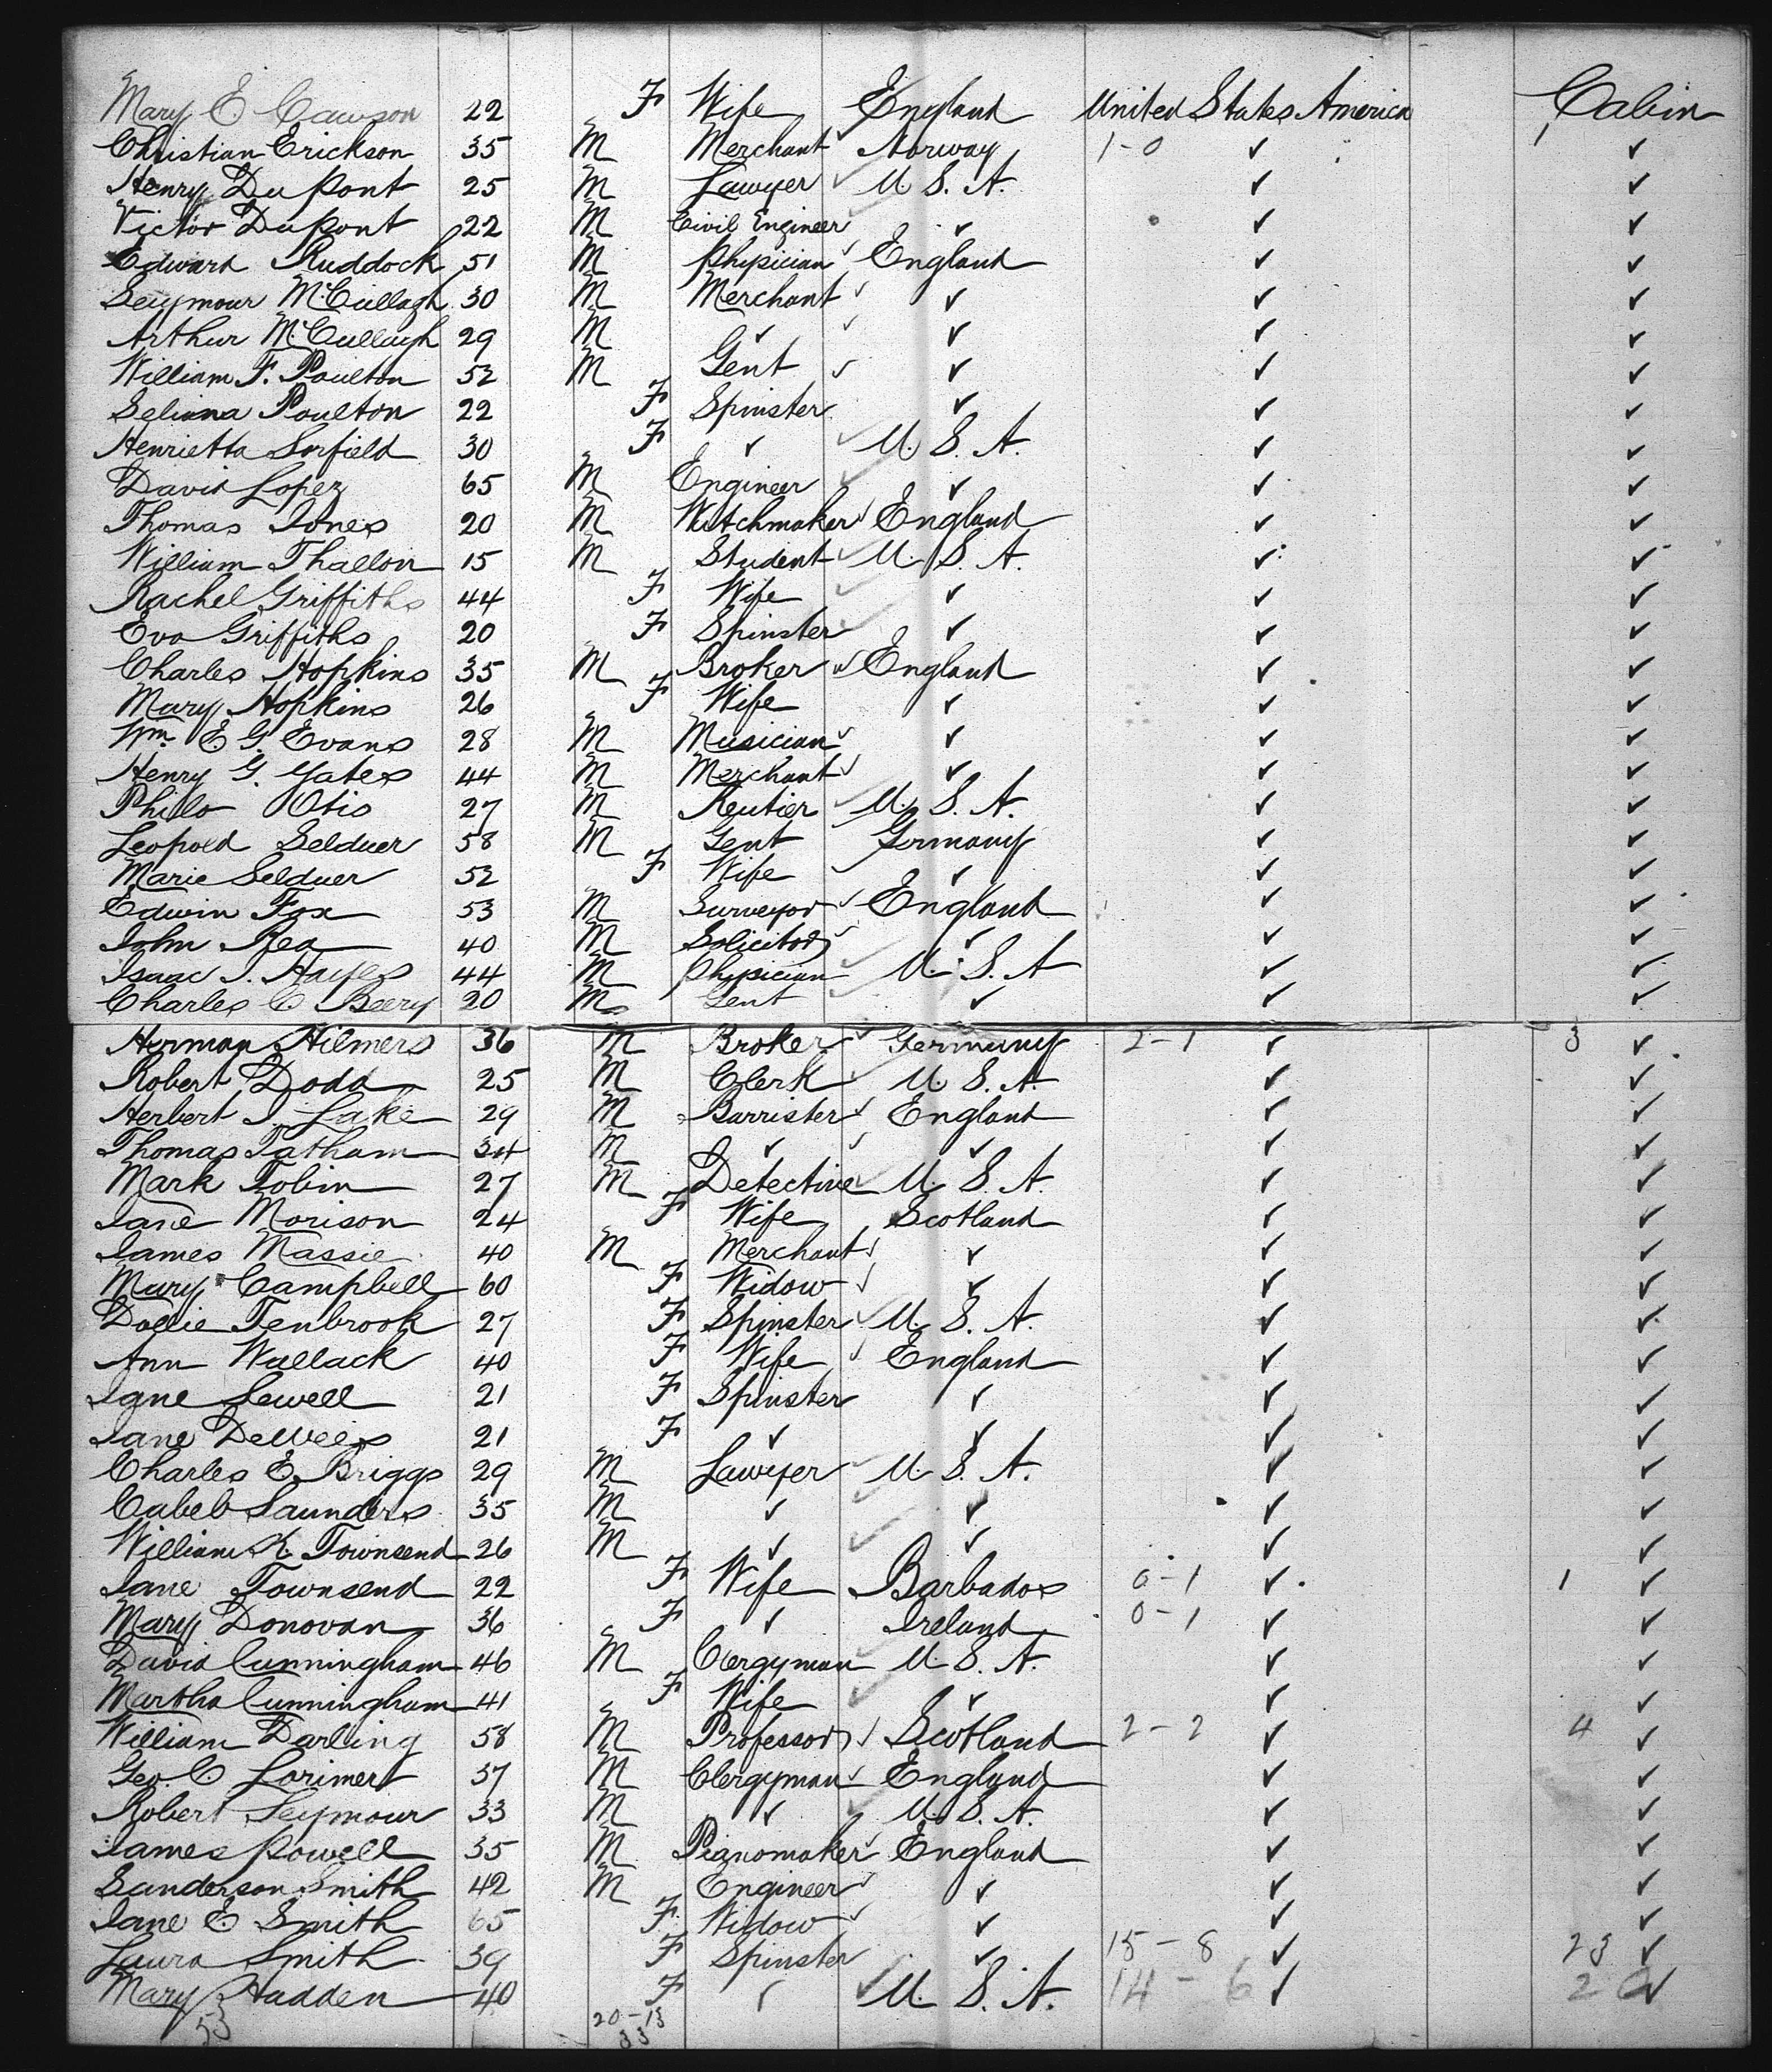 Mary E Cawson 22 F Wife England United States America Cabin
Christian Erickson 35 M Merchant ✓ Norway 1-0 ✓ 1 ✓
Henry DuPont 25 M Lawyer ✓ U. S. A. ✓ ✓
Victor DuPont 22 M Civil Engineer ✓ ✓ ✓
Edward Ruddock 51 M Physician ✓ England ✓ ✓
Seymour McCullagh 30 M Merchant ✓ ✓ ✓ ✓
Arthur McCullagh 29 M ✓ ✓ ✓ ✓ ✓
William F. Poulton 52 M Gent ✓ ✓ ✓ ✓
Selina Poulton 22 F Spinster ✓ ✓ ✓
Henrietta Sorfield 30 F ✓ ✓ U. S. A. ✓ ✓
David Lopez 65 M Engineer ✓ ✓ ✓ ✓
Thomas Jones 20 M Watchmaker ✓ England ✓ ✓
William Thallon 15 M Student ✓ U. S. A. ✓ ✓
Rachel Griffiths 44 F Wife ✓ ✓ ✓ ✓
Eva Griffiths 20 F Spinster ✓ ✓ ✓ ✓
Charles Hopkins 35 M Broker ✓ England ✓ ✓
Mary Hopkins 26 F Wife ✓ ✓ ✓
Wm. E G. Evans 28 M Musician ✓ ✓ ✓ ✓
Henry G. Yates 44 M Merchant ✓ ✓ ✓ ✓
Philo Otis 27 M Reutier ✓ U. S. A. ✓ ✓
Leopold Selduer 58 M Gent Germany ✓ ✓
Marie Selduer 52 F Wife ✓ ✓ ✓ ✓
Edwin Fox 53 M Surveyor ✓ England ✓ ✓
John Rea 40 M Solicitor ✓ ✓ ✓ ✓
Isaac I. Hayes 44 M Physician ✓ U. S. A ✓ ✓
Charles C. Beery 20 M Gent ✓ ✓ ✓ ✓
Herman Hilmers 36 M Broker ✓ Germany 2-1 ✓ 3 ✓
Robert Dodd 25 M Clerk ✓ U. S. A. ✓ ✓
Herbert J. Lake 29 M Barrister ✓ England ✓ ✓
Thomas Tatham 34 M ✓ ✓ ✓ ✓ ✓
Mark Tobin 27 M Detective ✓ U. S. A. ✓ ✓
Jane Morison 24 F Wife Scotland ✓ ✓
James Massie 40 M Merchant ✓ ✓ ✓ ✓
Mary Campbell 60 F Widow ✓ ✓ ✓ ✓
Dollie Tenbrook 27 F Spinster ✓ U. S. A. ✓ ✓
Ann Wallack 40 F Wife ✓ England ✓ ✓
Jane Sewell 21 F Spinster ✓ ✓ ✓
Jane DeWees 21 F ✓ ✓ ✓ ✓
Charles E. Briggs 29 M Lawyer ✓ U. S. A. ✓ ✓
Cabeb Saunders 35 M ✓ ✓ ✓ ✓ ✓
William K. Townsend 26 M ✓ ✓ ✓ ✓ ✓
Jane Townsend 22 F Wife Barbados 0-1 ✓ 1 ✓
Mary Donovan 36 F ✓ Ireland 0-1 ✓ ✓
David Cunningham 46 M Clergyman U. S. A. ✓ ✓
Martha Cunningham 41 F Wife ✓ ✓ ✓ ✓
William Darling 58 M Professor ✓ Scotland 2-2 ✓ 4 ✓
Geo. C. Lorimer 37 M Clergyman ✓ England ✓ ✓
Robert Seymour 33 M ✓ ✓ U. S. A. ✓ ✓
James Powell 35 M Pianomaker ✓ England ✓ ✓
Sanderson Smith 42 M Engineer ✓ ✓ ✓ ✓
Jane E Smith 65 F Widow ✓ ✓ ✓ ✓
Laura Smith 39 F Spinster ✓ 15-8 ✓ 23 ✓
Mary Hadden 40 F ✓ ✓ U. S. A. 14-6 ✓ 20 ✓
53 20-13
33